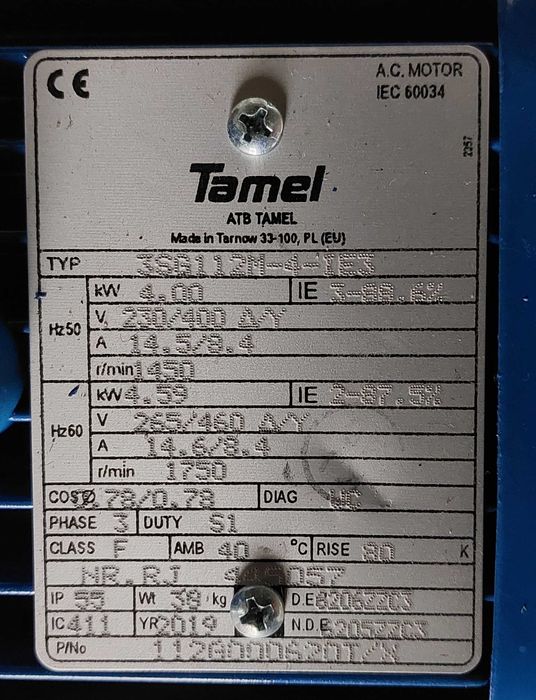 CE
A.C. MOTOR
IEC 60034
2257
Tamel
ATB TAMEL
Made in Tarnow 33-100, PL (EU)
TYP 3SG112M-4-IE3
Hz50
kW 4.00 IE 3-88.6%
V 230/400 Δ/Y
A 14.5/8.4
r/min 1450
Hz60
kW 4.59 IE 2-87.5%
V 265/460 Δ/Y
A 14.6/8.4
r/min 1750
COSØ 0.78/0.78 DIAG WC
PHASE 3 DUTY S1
CLASS F AMB 40 °C RISE 80 K
NR.RJ
IP 55 Wt 38 kg D.E 62062ZC3
IC 411 YR 2019 N.D.E 62052ZC3
P/No